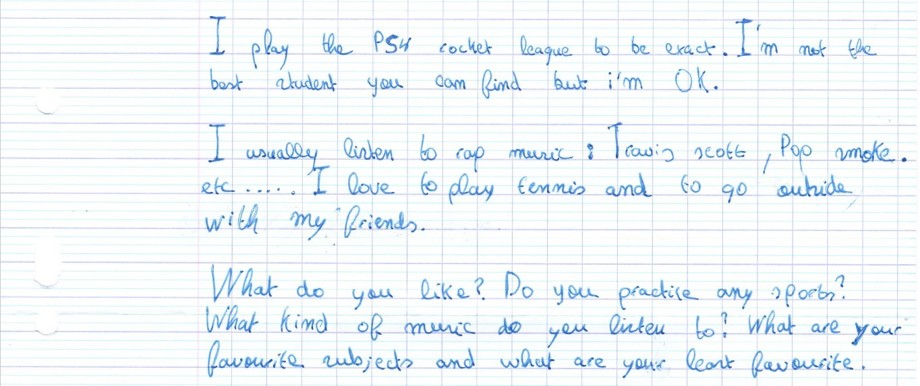 I play the PS4 rocket league to be exact. I'm not the
best student you can find but i'm OK.
I usually listen to rap music : Travis scott, Pop smoke.
etc ..... I love to play tennis and to go outside
with my friends.
What do you like? Do you practise any sports?
What kind of music do you listen to? What are your
favourite subjects and what are your least favourite.